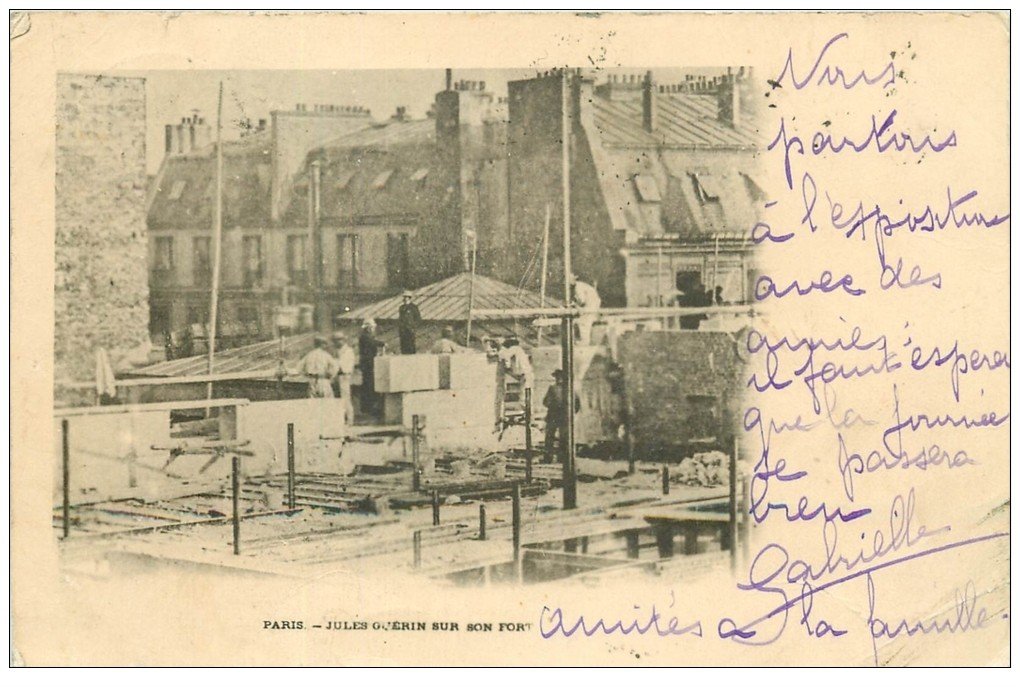 Nous
partons
à l'exposition
avec des
amies
il faut espérer
que la journée
se passera
bien
Gabrielle
PARIS. – JULES GUÉRIN SUR SON FORT
Amitiés a la famille.